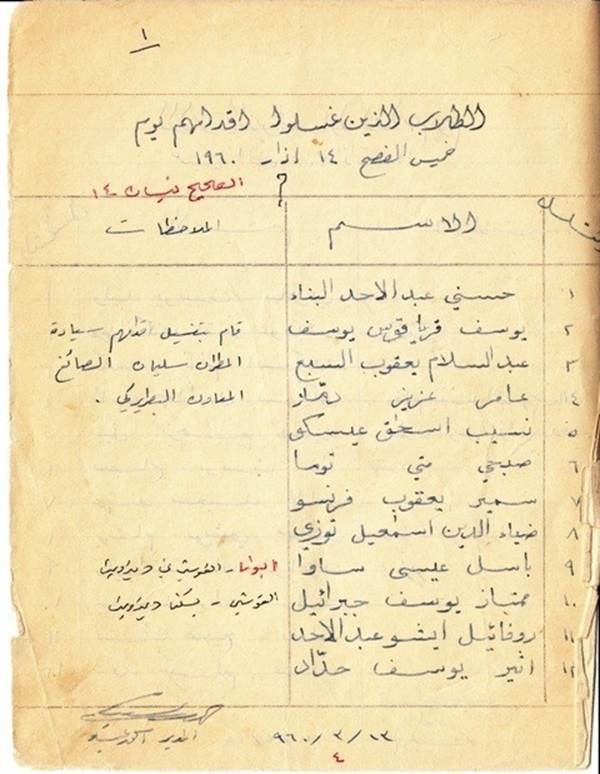 ١
الطلاب الذين غسلوا اقدامهم يوم
خميس الفصح ١٤ اذار ١٩٦٠
الصحيح نيسان ١٤
الاسم الملاحظات
١ حسني عبد الاحد البناء
٢ يوسف قرياقوس يوسف قام بتغسيل اقدامهم سيادة
٣ عبد السلام يعقوب السبع المطران سليمان الصائغ
٤ عامر عزيز المعاون البطريركي .
٥ نسيب اسحق عيسكو
٦ صبحي متي توما
٧ سمير يعقوب فرنسو
٨ ضياء الدين اسمعيل توزي
٩ باسل عيسى ساوا
١٠ ممتاز يوسف جبرائيل
١١ روفائيل ايشو عبد الاحد
١٢ اثير يوسف حدّاد
المدير
٩٦٠/٣/١٣
٤